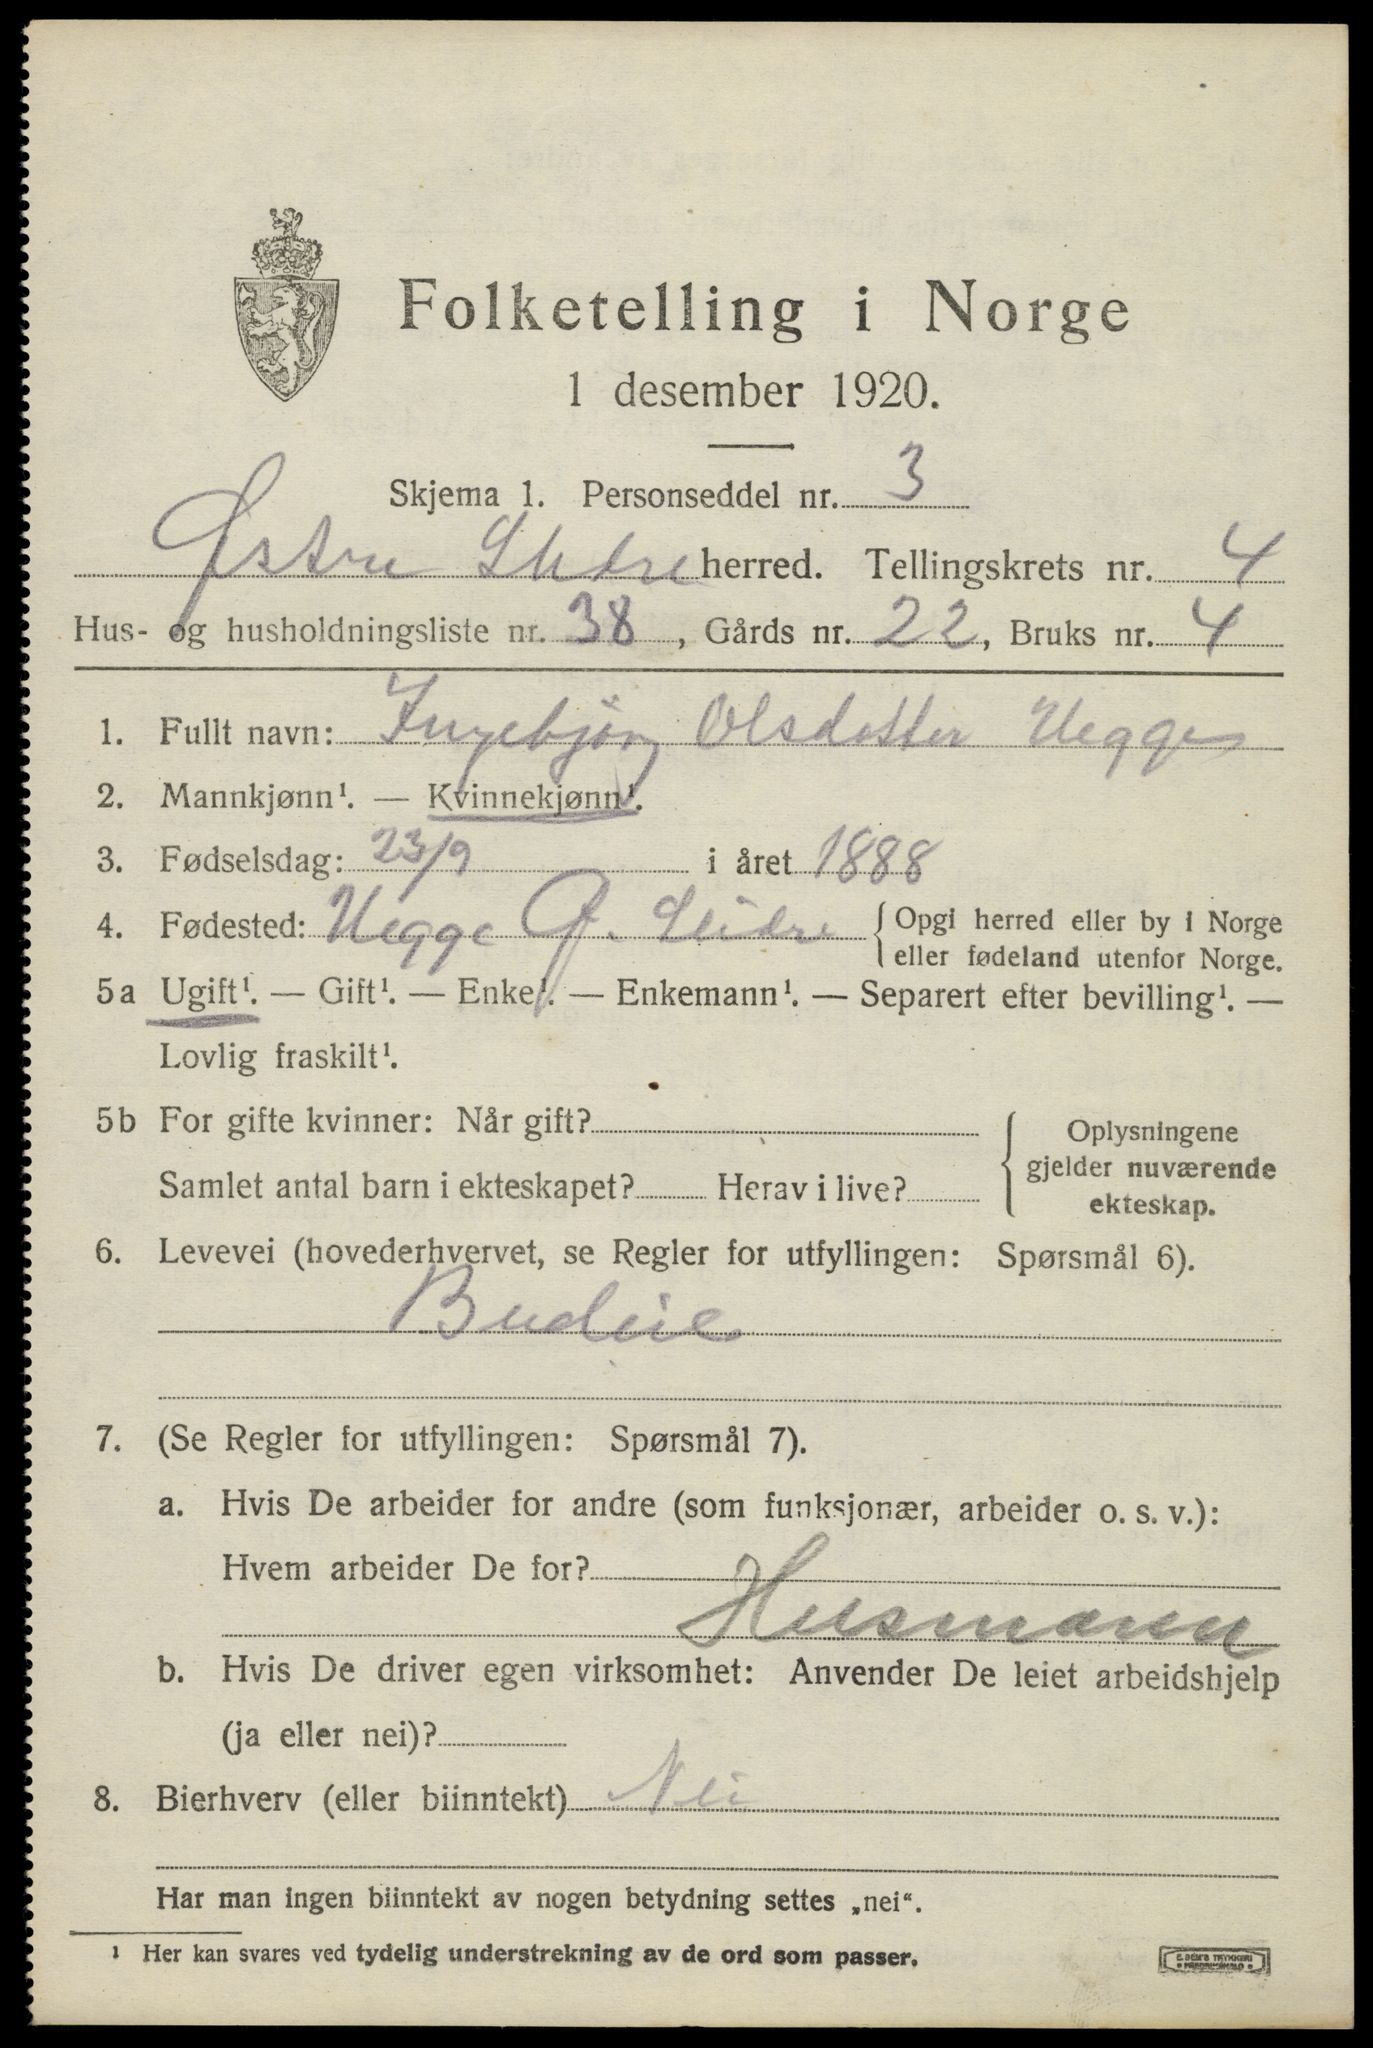 Folketelling i Norge
1 desember 1920.
Skjema 1. Personseddel nr. 3
Østre Slidre herred. Tellingskrets nr. 4
Hus- og husholdningsliste nr. 38, Gårds nr. 22, Bruks nr. 4
1. Fullt navn: Ingebjørg Olsdotter Hegge
2. Mannkjønn¹. — Kvinnekjønn¹.
3. Fødselsdag: 23/9 i året 1888
4. Fødested: Hegge Ø. Slidre { Opgi herred eller by i Norge
eller fødeland utenfor Norge.
5a Ugift¹. — Gift¹. — Enke¹. — Enkemann¹. — Separert efter bevilling¹. —
Lovlig fraskilt¹.
5b For gifte kvinner: Når gift?
Samlet antal barn i ekteskapet? Herav i live?
{ Oplysningene
gjelder nuværende
ekteskap.
6. Levevei (hovederhvervet, se Regler for utfyllingen: Spørsmål 6).
Budeie
7. (Se Regler for utfyllingen: Spørsmål 7).
a. Hvis De arbeider for andre (som funksjonær, arbeider o. s. v.):
Hvem arbeider De for?
Husmann
b. Hvis De driver egen virksomhet: Anvender De leiet arbeidshjelp
(ja eller nei)?
8. Bierhverv (eller biinntekt) Nei
Har man ingen biinntekt av nogen betydning settes „nei“.
¹ Her kan svares ved tydelig understrekning av de ord som passer.